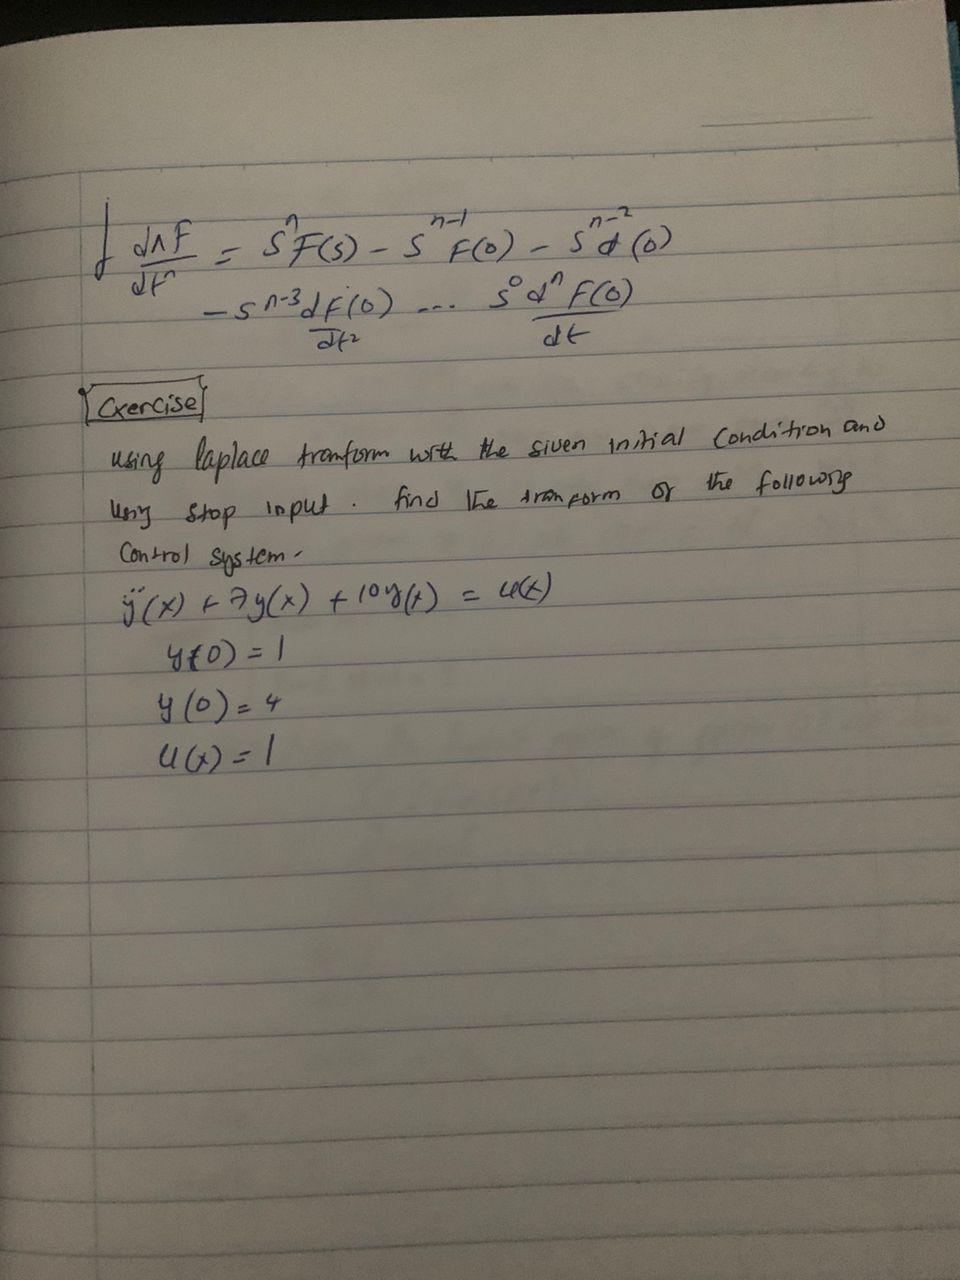 ∫ dnF/dtⁿ = SⁿF(s) - S^(n-1) F(0) - S^(n-2) d (0)
- S^(n-3) dF(0)/dt² ... S⁰ dⁿ F(0)/dt
Exercise
using laplace tranform with the given initial Condition and
Using stop input. find the tranform of the following
Control system.
ÿ(x) + 7y(x) + 10y(t) = u(t)
y(0) = 1
y(0) = 4
u(x) = 1